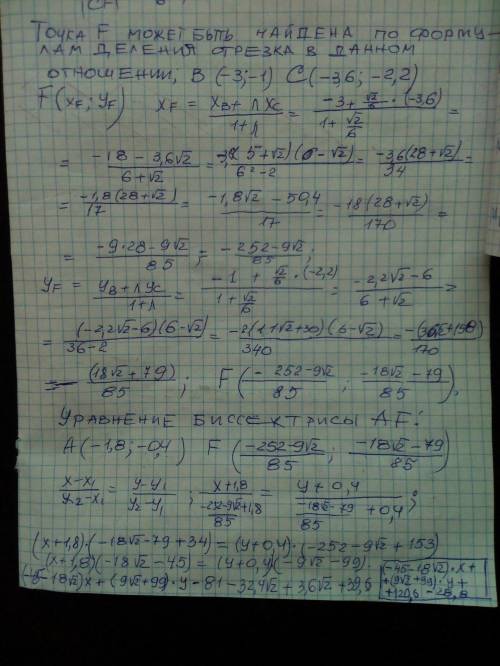 Точка F может быть найдена по форму-
лам деления отрезка в данном
отношении, B (-3;-1) C(-3,6; -2,2)
F(x_F; y_F) x_F = (x_B + λx_C)/(1+λ) = (-3 + √2/6 · (-3,6))/(1 + √2/6) =
= (-18 - 3,6√2)/(6+√2) = (5+√2)(6-√2)/(6²-2) = -3,6(28+√2)/34 =
= -1,8(28+√2)/17 = (-1,8√2 - 50,4)/17 = -18(28+√2)/170 =
= (-9·28-9√2)/85 ; = (-252-9√2)/85 ;
y_F = (y_B + λy_C)/(1+λ) = (-1 + √2/6 · (-2,2))/(1 + √2/6) = (-2,2√2-6)/(6+√2) =
= (-2,2√2-6)(6-√2)/(36-2) = -2(11√2+30)(6-√2)/340 = -(36√2+158)/170
= -(18√2+79)/85 ; F((-252-9√2)/85 ; (-18√2-79)/85),
Уравнение биссектрисы AF:
A(-1,8; -0,4) F((-252-9√2)/85 ; (-18√2-79)/85)
(x-x₁)/(x₂-x₁) = (y-y₁)/(y₂-y₁) ; (x+1,8)/((-252-9√2)/85+1,8) = (y+0,4)/((-18√2-79)/85 +0,4) ;
(x+1,8)·(-18√2-79+34) = (y+0,4)·(-252-9√2+153)
(x+1,8)(-18√2-45) = (y+0,4)(-9√2-99)
(-45-18√2)x + (9√2+99)·y-81-32,4√2+3,6√2+39,6
(-45-18√2)·x+
+(9√2+99)·y+